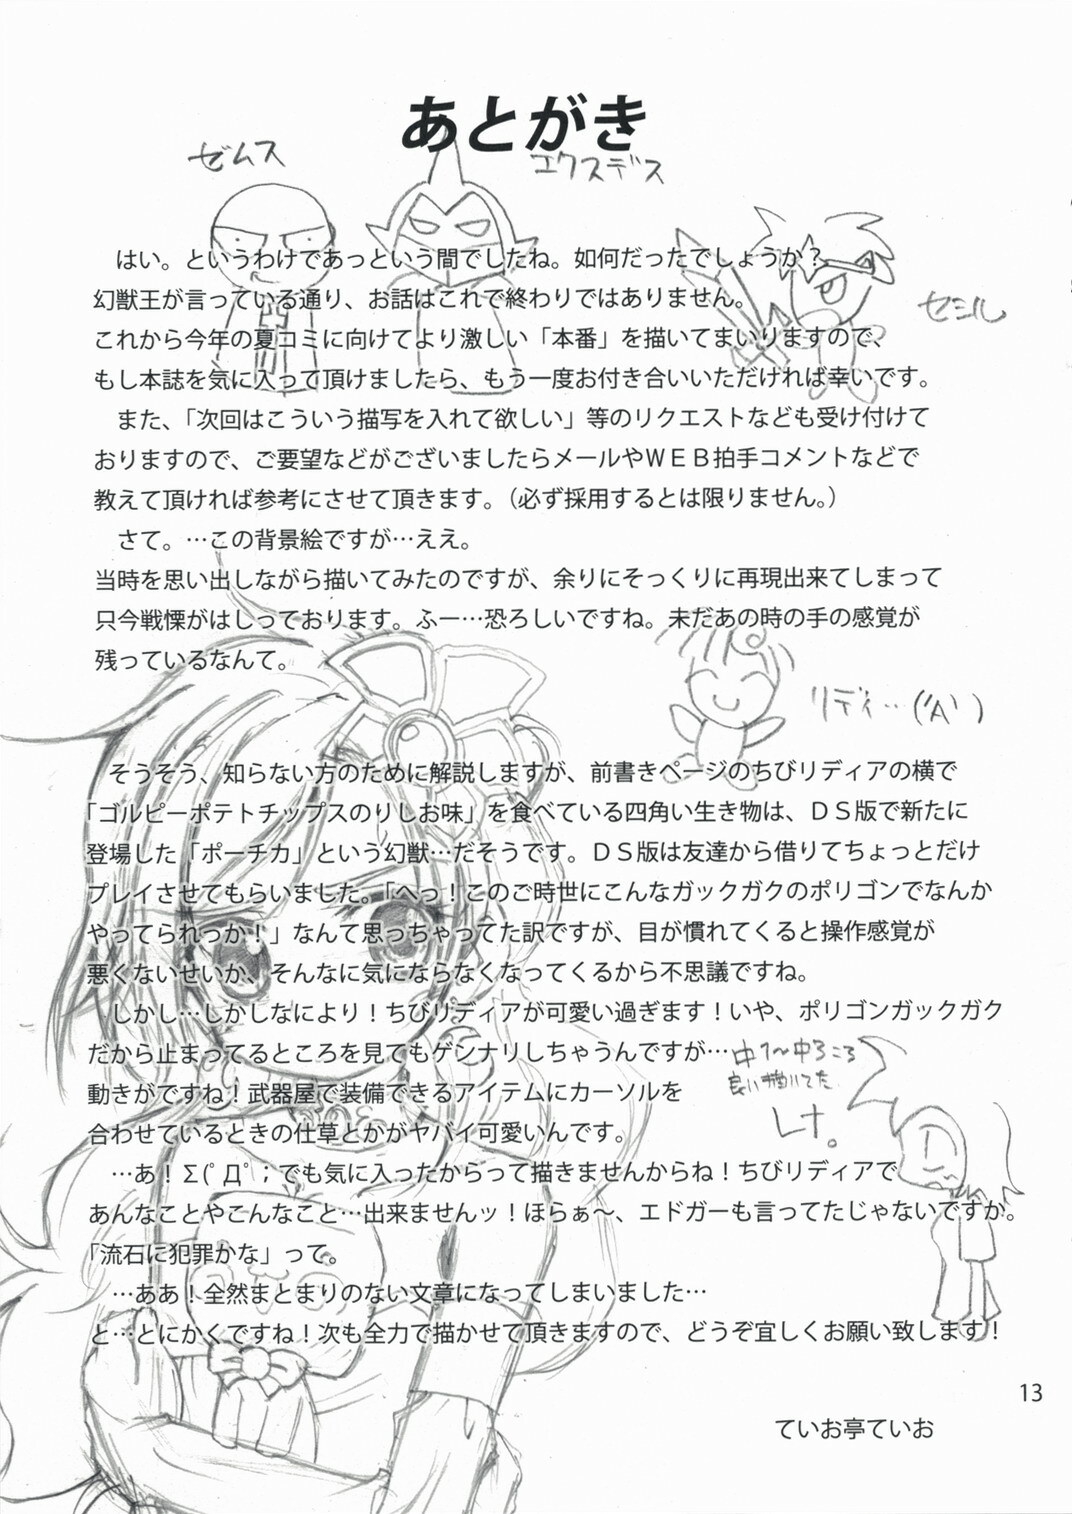 あとがき
ゼムス
エクスデス
はい。というわけであっという間でしたね。如何だったでしょうか？
幻獣王が言っている通り、お話はこれで終わりではありません。
セシル
これから今年の夏コミに向けてより激しい「本番」を描いてまいりますので、
もし本誌を気に入って頂けましたら、もう一度お付き合いいただければ幸いです。
また、「次回はこういう描写を入れて欲しい」等のリクエストなども受け付けて
おりますので、ご要望などがございましたらメールやＷＥＢ拍手コメントなどで
教えて頂ければ参考にさせて頂きます。（必ず採用するとは限りません。）
さて。…この背景絵ですが…ええ。
当時を思い出しながら描いてみたのですが、余りにそっくりに再現出来てしまって
只今戦慄がはしっております。ふー…恐ろしいですね。未だあの時の手の感覚が
残っているなんて。
リディ…('A`)
そうそう、知らない方のために解説しますが、前書きページのちびリディアの横で
「ゴルピーポテトチップスのりしお味」を食べている四角い生き物は、ＤＳ版で新たに
登場した「ポーチカ」という幻獣…だそうです。ＤＳ版は友達から借りてちょっとだけ
プレイさせてもらいました。「へっ！このご時世にこんなガックガクのポリゴンでなんか
やってられっか！」なんて思っちゃってた訳ですが、目が慣れてくると操作感覚が
悪くないせいか、そんなに気にならなくなってくるから不思議ですね。
しかし…しかしなにより！ちびリディアが可愛い過ぎます！いや、ポリゴンガックガク
だから止まってるところを見てもゲンナリしちゃうんですが…
中1〜中3ころ
良く描いてた
レナ。
動きがですね！武器屋で装備できるアイテムにカーソルを
合わせているときの仕草とかがヤバイ可愛いんです。
…あ！Σ(ﾟДﾟ；でも気に入ったからって描きませんからね！ちびリディアで
あんなことやこんなこと…出来ませんッ！ほらぁ〜、エドガーも言ってたじゃないですか。
「流石に犯罪かな」って。
…ああ！全然まとまりのない文章になってしまいました…
と…とにかくですね！次も全力で描かせて頂きますので、どうぞ宜しくお願い致します！
13
ていお亭ていお